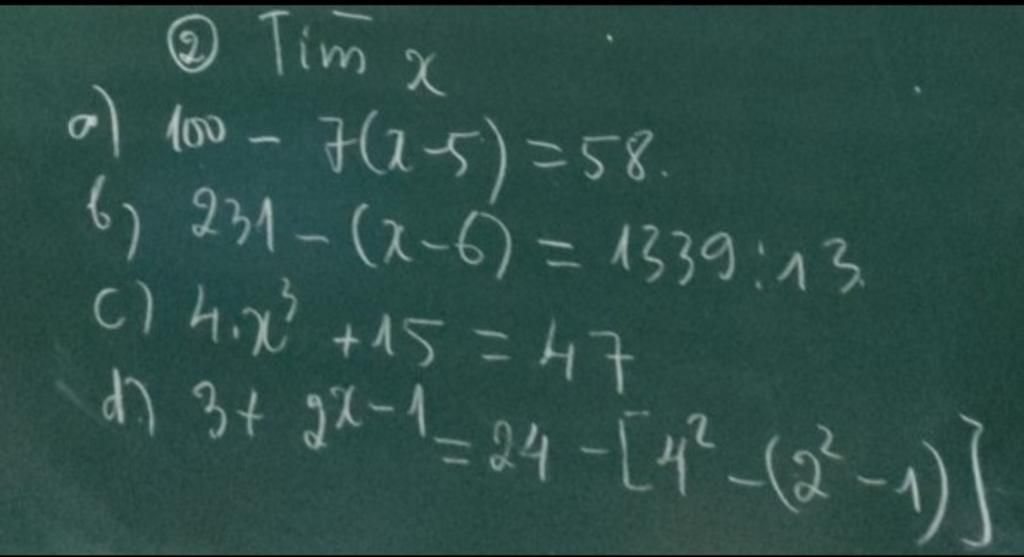 ② Tìm x
a) 100 - 7(x-5) = 58.
b) 231 - (x-6) = 1339:13.
c) 4.x³ + 15 = 47
d) 3 + 2^{x-1} = 24 - [4² - (2² - 1)]